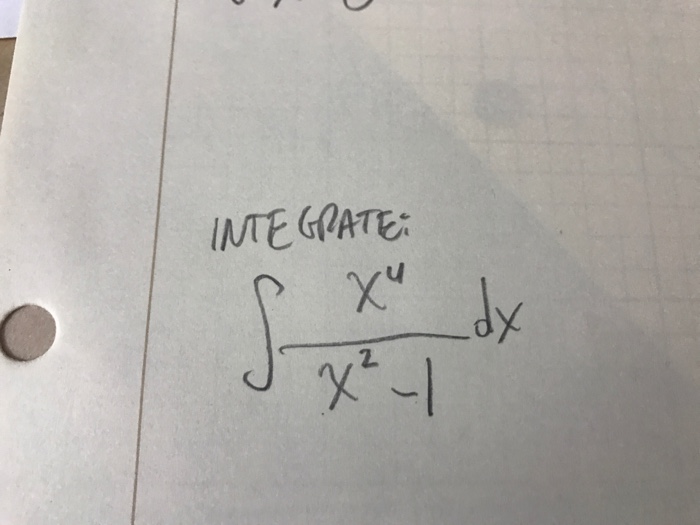 INTEGRATE:
∫ x⁴ / (x² - 1) dx